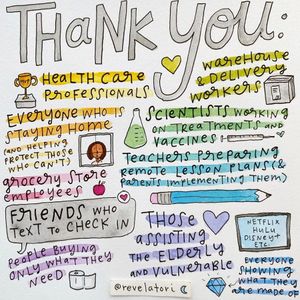 THANK YOU:
HEALTH CARE
PROFESSIONALS
WAREHOUSE
& DELIVERY
WORKERS
EVERYONE WHO IS
STAYING HOME
(AND HELPING
PROTECT THOSE
WHO CAN'T)
SCIENTISTS WORKING
ON TREATMENTS AND
VACCINES
TEACHERS PREPARING
REMOTE LESSON PLANS (&
PARENTS IMPLEMENTING THEM)
GROCERY STORE
EMPLOYEES
FRIENDS WHO
TEXT TO CHECK IN
THOSE
ASSISTING
THE ELDERLY
AND VULNERABLE
NETFLIX
HULU
DISNEY+
ETC.
PEOPLE BUYING
ONLY WHAT THEY
NEED
@revelatori
EVERYONE
SHOWING
WHAT THEY
ARE MADE OF